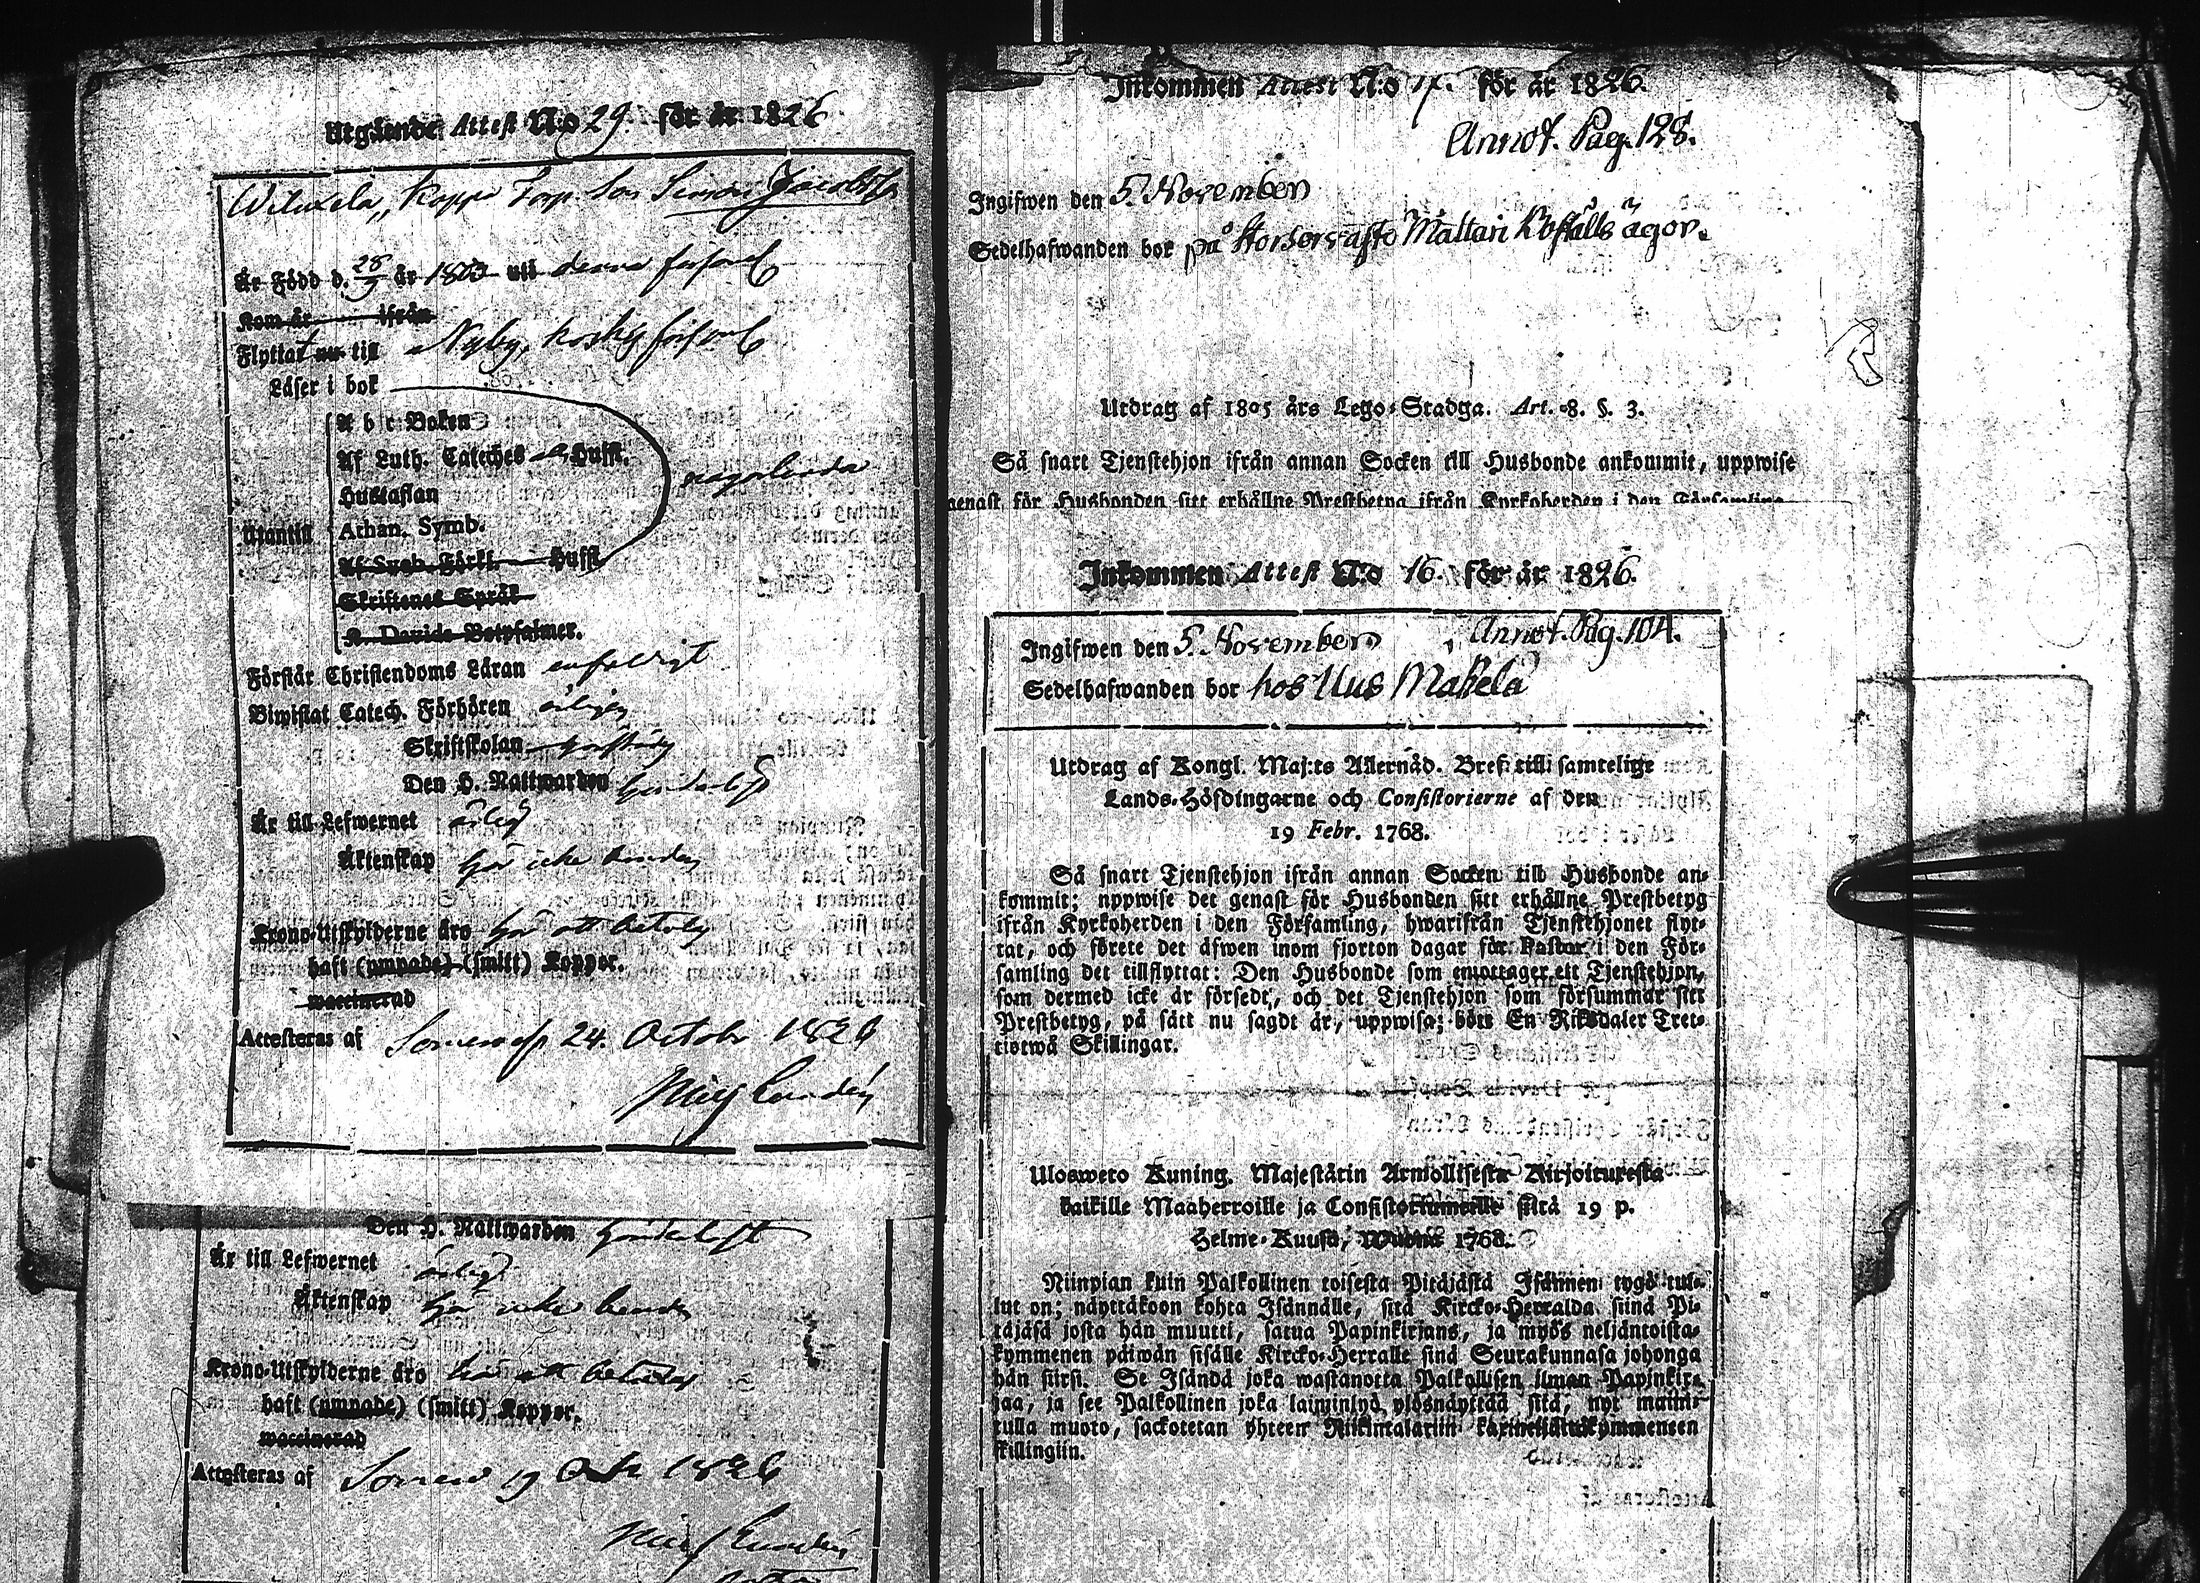 Utgående Attest N:o 29. för år 1826
Torp. Son Simon Jacobsson
År Född d. 28 år uti denne församl
Kom år ifrån
Flyttat nu till Nyby, Koskis församl
Läser i bok
A b c Boken
Af Luth. Cateches Husst.
Hustaflan
någorlunda
Utantill
Athan. Symb.
Af Förkl. Husst
Skriftenes Språk
K. Davids Botpsalmer.
Förstår Christendoms Läran enfaldigt
Biwistat Catech. Förhören årligen
Skriftskolan
Den H. Nattwarden
Är till Lefwernet ärlig
Äktenskap här icke bunden
Krono-Utskylderne äro här att betala
haft (ympade) (smitt) Koppor.
waccinerad
Attesteras af 24. October 1826
Den H. Nattwarden
Är till Lefwernet ärligt
Äktenskap här icke bunden
Krono-Utskylderne äro här att betala
haft (ympade) (smitt) Koppor.
waccinerad
Attesteras af 19 1826
Inkommen Attest N:o 17. för år 1826.
Annot. Pag. 128.
Ingifwen den 5. November
Sedelhafwanden bor på Mattari Boställs ägor.
Utdrag af 1805 års Lego-Stadga. Art. 8. §. 3.
Så snart Tjenstehjon ifrån annan Socken till Husbonde ankommit, uppwise
genast för Husbonden sitt erhållne Prestbetyg ifrån Kyrkoherden i den Församling
Inkommen Attest N:o 16. för år 1826.
Ingifwen den 5. November, Annot. Pag. 104.
Sedelhafwanden bor hos Uus Mäkelä
Utdrag af Kongl. Maj:ts Allernåd. Bref till samtelige
Lands-Höfdingarne och Consistorierne af den
19 Febr. 1768.
Så snart Tjenstehjon ifrån annan Socken till Husbonde an-
kommit; uppwise det genast för Husbonden sitt erhållne Prestbetyg
ifrån Kyrkoherden i den Församling, hwarifrån Tjenstehjonet flyt-
tat, och förete det äfwen inom fjorton dagar för Pastor i den För-
samling det tillflyttat: Den Husbonde som emottager ett Tjenstehjon,
som dermed icke är försedt, och det Tjenstehjon som försummar sitt
Prestbetyg, på sätt nu sagdt är, uppwisa; böte En Riksdaler Tret-
tiotwå Skillingar.
Ulosweto Kuning. Majestätin Armollisesta Kirjoituresta
kaikille Maaherroille ja Consistoriumeille siitä 19 p.
Helme-Kuusa, Wuonna 1768.
Niinpian kuin Palkollinen toisesta Pitäjästä Isännen tygö tul-
lut on; näyttäkoon kohta Isännälle, sitä Kircko-Herralda siinä Pi-
täjäsä josta hän muutti, satua Papinkirjans, ja myös neljäntoista-
kymmenen päiwän sisälle Kircko-Herralle siinä Seurakunnasa johonga
hän siirsi. Se Isändä joka wastanotta Palkollisen ilman Papinkir-
jaa, ja see Palkollinen joka laiminlyö ylösnäyttää sitä, nyt maini-
tulla muoto, sackotetan yhteen Riikintalariin kaxineljättäkymmeneen
skillingiin.